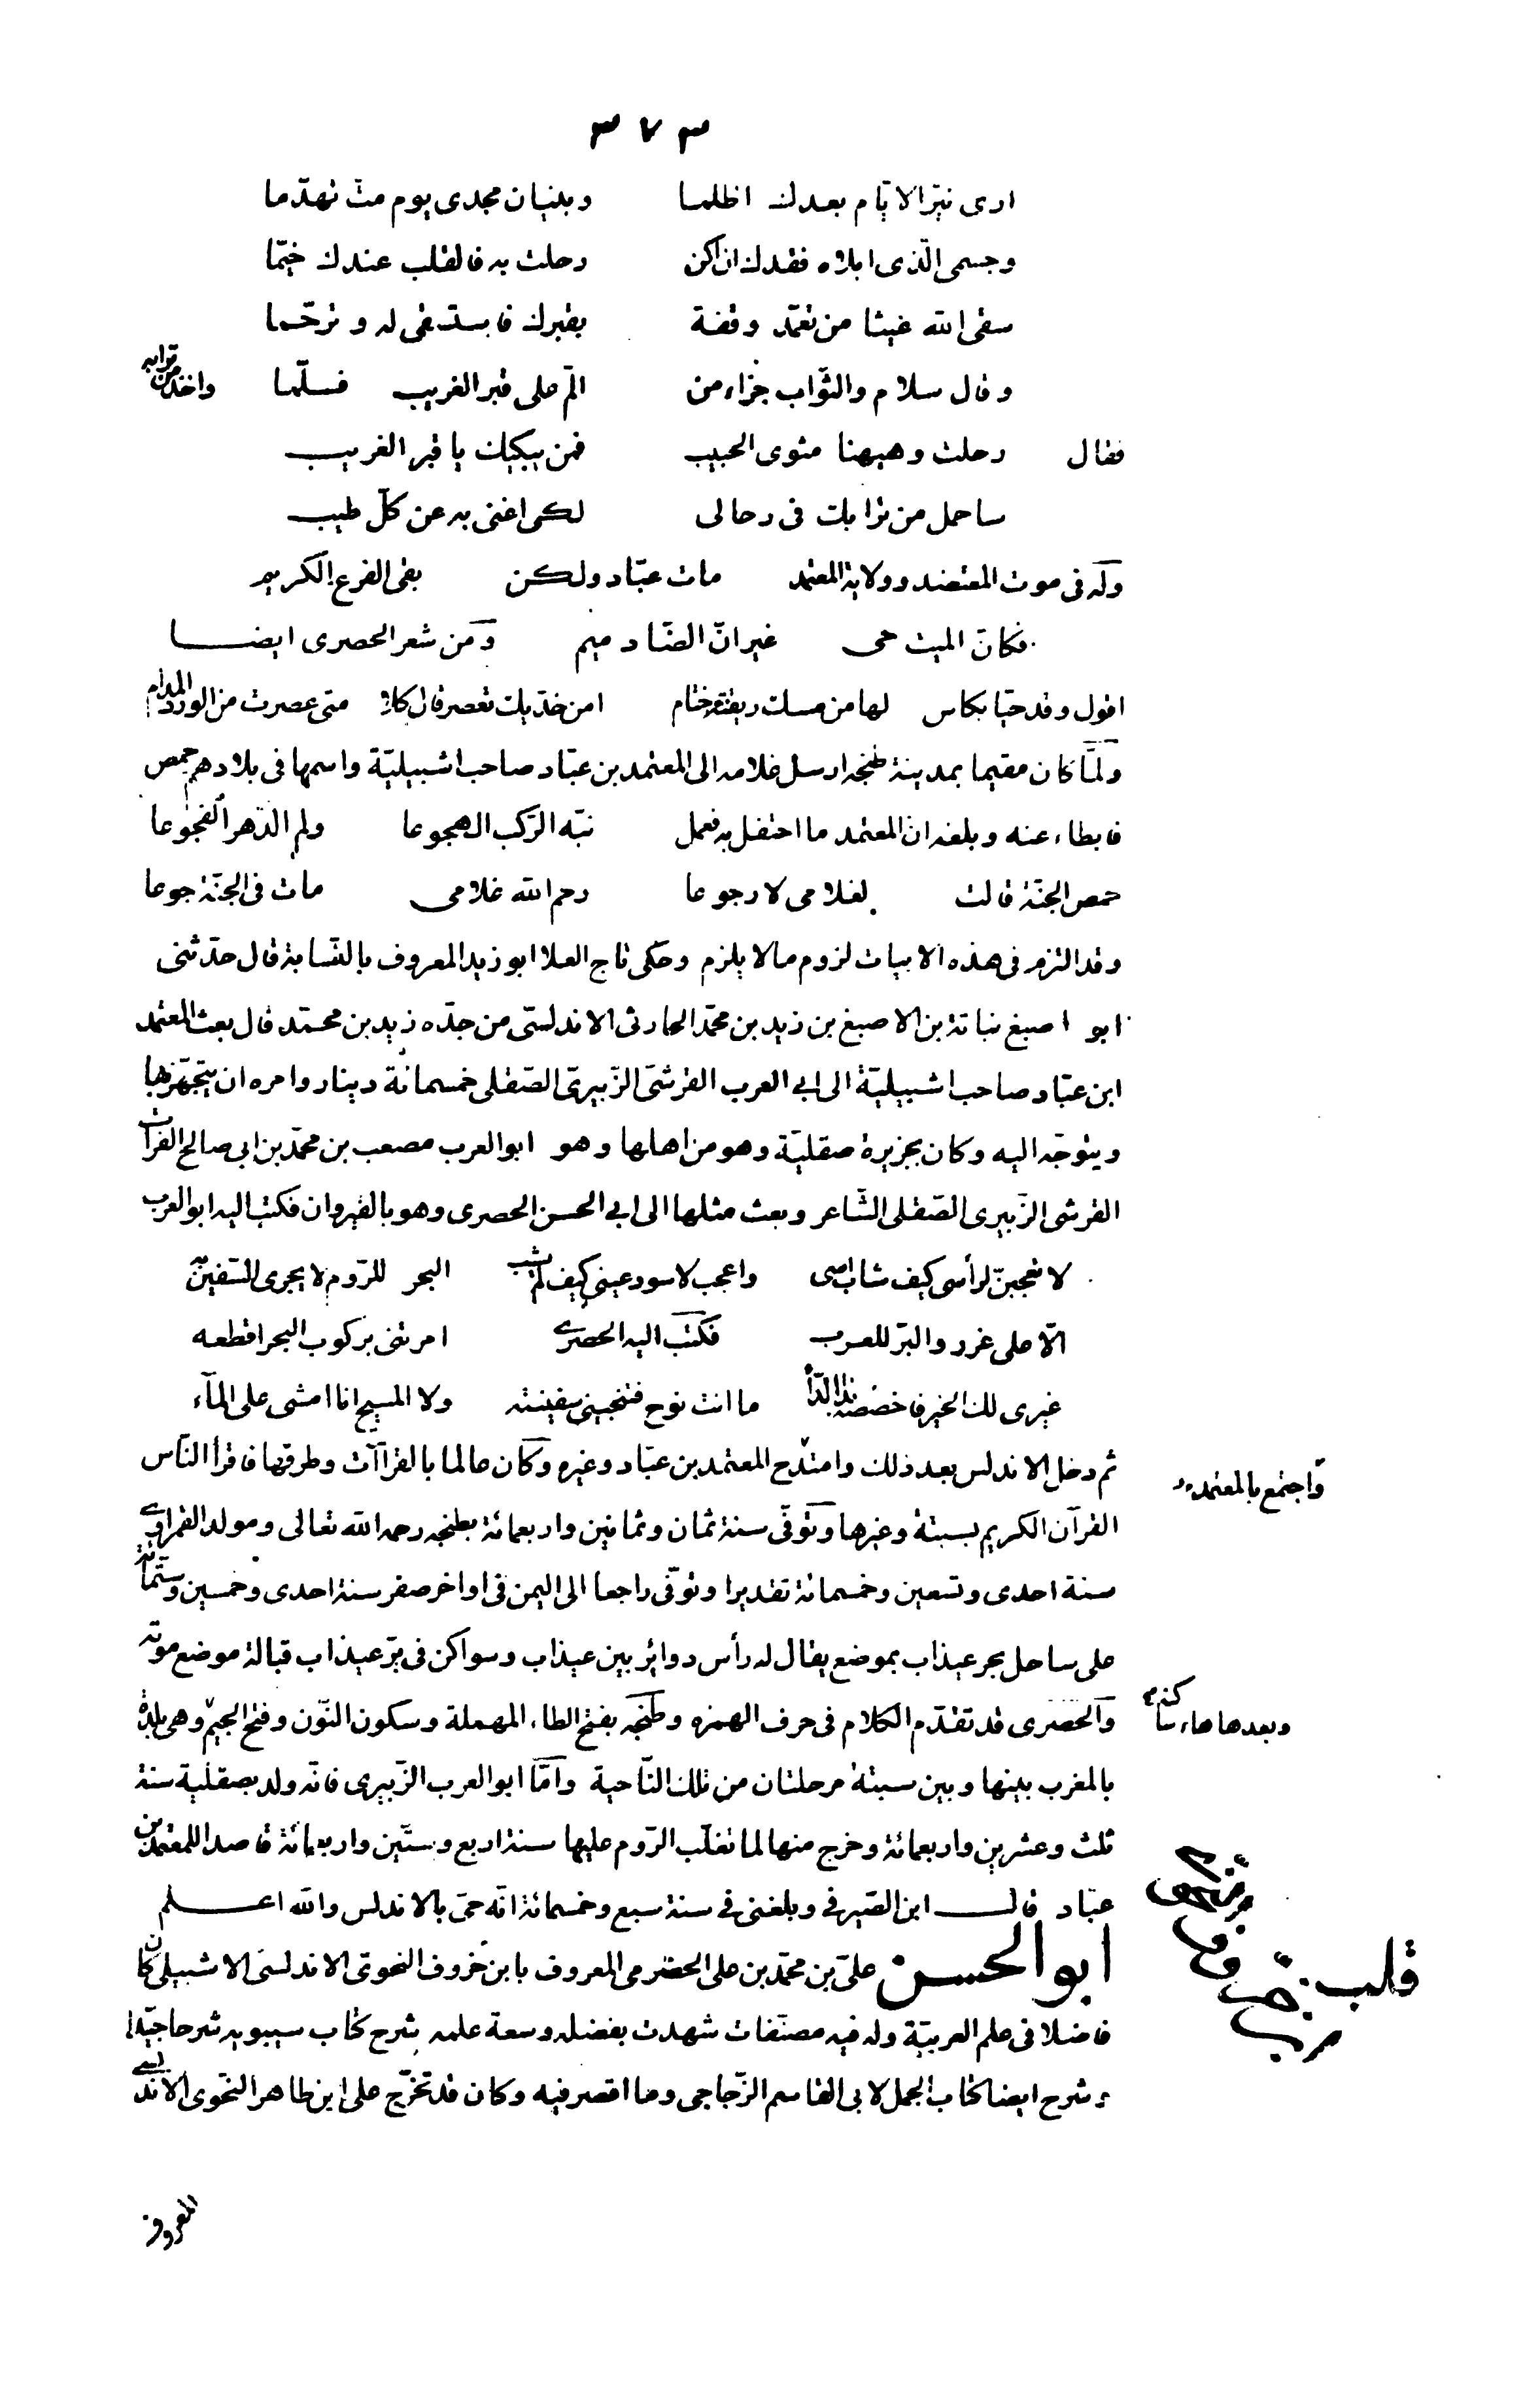 ٣٧٣
ارى نيّر الايّام بعدك اظلما وبنيان مجدى يوم متّ تهدّما
وجسمى الّذى ابلاه فقدك ان اكن رحلت به فالقلب عندك خيّما
سقى الله غيثا من تعمّد وقفة بقبرك فاستسقى له وترحّما
وقال سلام والثّواب جزاء من المّ على قبر الغريب فسلّما واخذ من ترابه
فقال رحلت وهيهنا مثوى الحبيب فمن يبكيك يا قبر الغريب
ساحمل من ترابك فى رحالى لكى اغنى به عن كلّ طيب
وله فى موت المعتضد وولاية المعتمد مات عبّاد ولكن بقى الفرع الكريم
فكانّ الميت حى غير انّ الضّاد ميم ومن شعر الحصرى ايضا
اقول وقد حيّا بكاس لها من مسك ريقته ختام امن خدّيك تعصر قال كلا متى عصرت من الورد المدام
ولمّا كان مقيما بمدينة طنجه ارسل غلامه الى المعتمد بن عبّاد صاحب اشبيليّة واسمها فى بلادهم حمص
فابطاء عنه وبلغه ان المعتمد ما احتفل به فعمل نبّه الرّكب الهجوعا ولم الدّهر الفجوعا
حمص الجنّة قالت لغلامى لا رجوعا رحم الله غلامى مات فى الجنّة جوعا
وقد التزم فى هذه الابيات لزوم مالا يلزم وحكى تاج العلا ابو زيد المعروف بالنّسابة قال حدّثنى
ابو اصبغ نباتة بن الاصبغ بن زيد بن محمّد الحارثى الاندلسّى من جدّه زيد بن محمّد قال بعث المعتمد
ابن عبّاد صاحب اشبيليّة الى ابى العرب القرشىّ الزّبيرىّ الصّقلى خمسمائة دينار وامره ان يتجهّز بها
ويتوجّه اليه وكان بجزيرة صقليّة وهو من اهلها وهو ابو العرب مصعب بن محمّد بن ابى صالح الفرات
القرشى الزّبيرى الصّقلى الشّاعر وبعث مثلها الى ابى الحسن الحصرى وهو بالقيروان فكتب اليه ابو العرب
لا تعجبنّ لرأسى كيف شاب اسى واعجب لاسود عينى كيف لم يشب البحر للرّوم لا يجرى السّفين به
الّا على غرر والبرّ للعرب فكتب اليه الحصرى امرتنى بركوب البحر اقطعه
غيرى لك الخير فاخصصه بذا الدّاء ما انت نوح فتنجينى سفينته ولا المسيح انا امشى على المآء
ثم دخل الاندلس بعد ذلك وامتدح المعتمد بن عبّاد وغيره وكان عالما بالقراآت وطرقها فاقرأ النّاس
واجتمع بالمعتمد
القرآن الكريم بسبتة وغيرها وتوفّى سنة ثمان وثمانين واربعمائة بطنجه رحمه الله تعالى ومولد القمراوى
سنة احدى وتسعين وخمسمائة تقديرا وتوفّى راجعا الى اليمن فى اواخر صفر سنة احدى وخمسين وستّمائة
على ساحل بحر عيذاب بموضع يقال له رأس دواير بين عيذاب وسواكن فى برّ عيذاب قبالة موضع موته
والحصرى قد تقدّم الكلام فى حرف الهمزه وطنجه بفتح الطاء المهملة وسكون النّون وفتح الجيم وهى بلدة
وبعدها هاء ساكنه
بالمغرب بينها وبين سبتة مرحلتان من تلك النّاحية وامّا ابو العرب الزّبيرى فانّه ولد بصقلية سنة
ثلث وعشرين واربعمائة وخرج منها لما تغلّب الرّوم عليها سنة اربع وستّين واربعمائة قاصدا للمعتمد بن
عبّاد قال ابن الصّيرفى وبلغنى فى سنة سبع وخمسمائة انّه حىّ بالاندلس والله اعلم
ابو الحسن علىّ بن محمّد بن على الحضرمى المعروف بابن خروف النحوىّ الاندلسىّ الاشبيلى كان
فاضلا فى علم العربيّة وله فيه مصنّفات شهدت بفضله وسعة علمه شرح كتاب سيبويه شرحا جيّدا
وشرح ايضا كتاب الجمل لابى القاسم الزّجاجى وما اقصر فيه وكان قد تخرّج على ابن طاهر النحّوى الاندلسى
المعروف